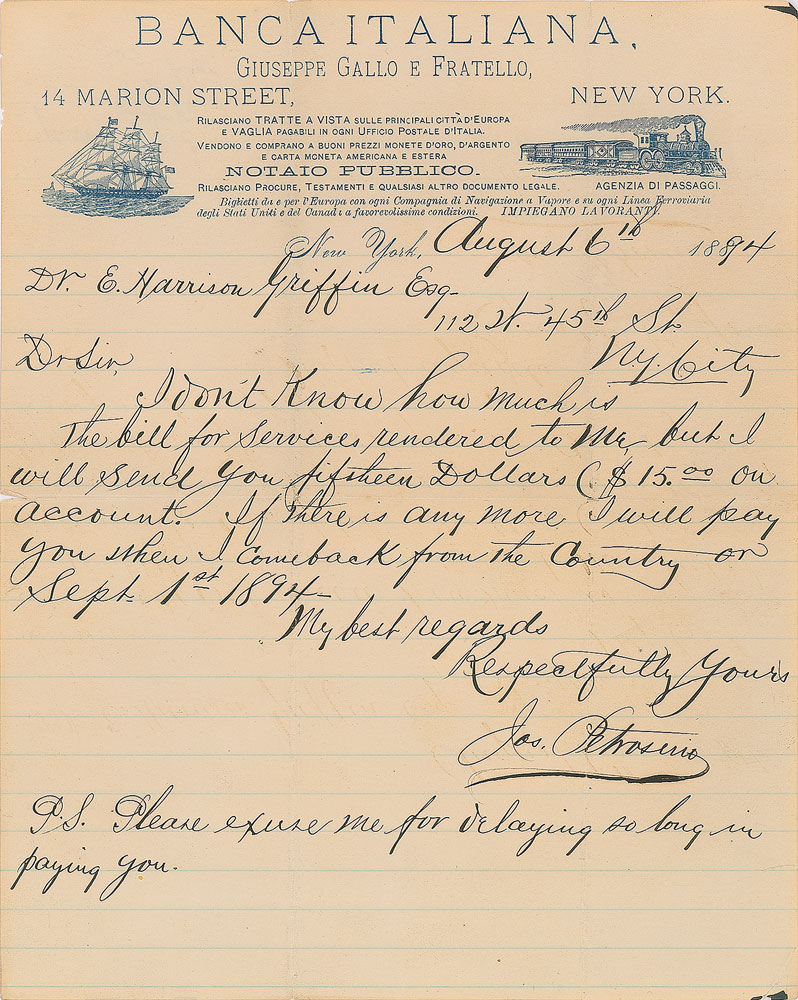 BANCA ITALIANA,
GIUSEPPE GALLO E FRATELLO,
14 MARION STREET, NEW YORK.
RILASCIANO TRATTE A VISTA SULLE PRINCIPALI CITTÀ D'EUROPA
E VAGLIA PAGABILI IN OGNI UFFICIO POSTALE D'ITALIA.
VENDONO E COMPRANO A BUONI PREZZI MONETE D'ORO, D'ARGENTO
E CARTA MONETA AMERICANA E ESTERA
NOTAIO PUBBLICO.
RILASCIANO PROCURE, TESTAMENTI E QUALSIASI ALTRO DOCUMENTO LEGALE. AGENZIA DI PASSAGGI.
Biglietti da e per l'Europa con ogni Compagnia di Navigazione a Vapore e su ogni Linea Ferroviaria
degli Stati Uniti e del Canada a favorevolissime condizioni. IMPIEGANO LAVORANTI.
New York, August 6th 1894
Dr. E. Harrison Griffin Esq-
112 W. 45th St.
N.Y. City
Dr Sir,
I don't Know how much is
the bill for services rendered to me, but I
will send you fifteen Dollars ($15.00 on
account. If there is any more I will pay
you when I comeback from the Country or
Sept. 1st 1894-
My best regards
Respectfully Yours
Jos. Petrosino
P.S. Please excuse me for delaying so long in
paying you.